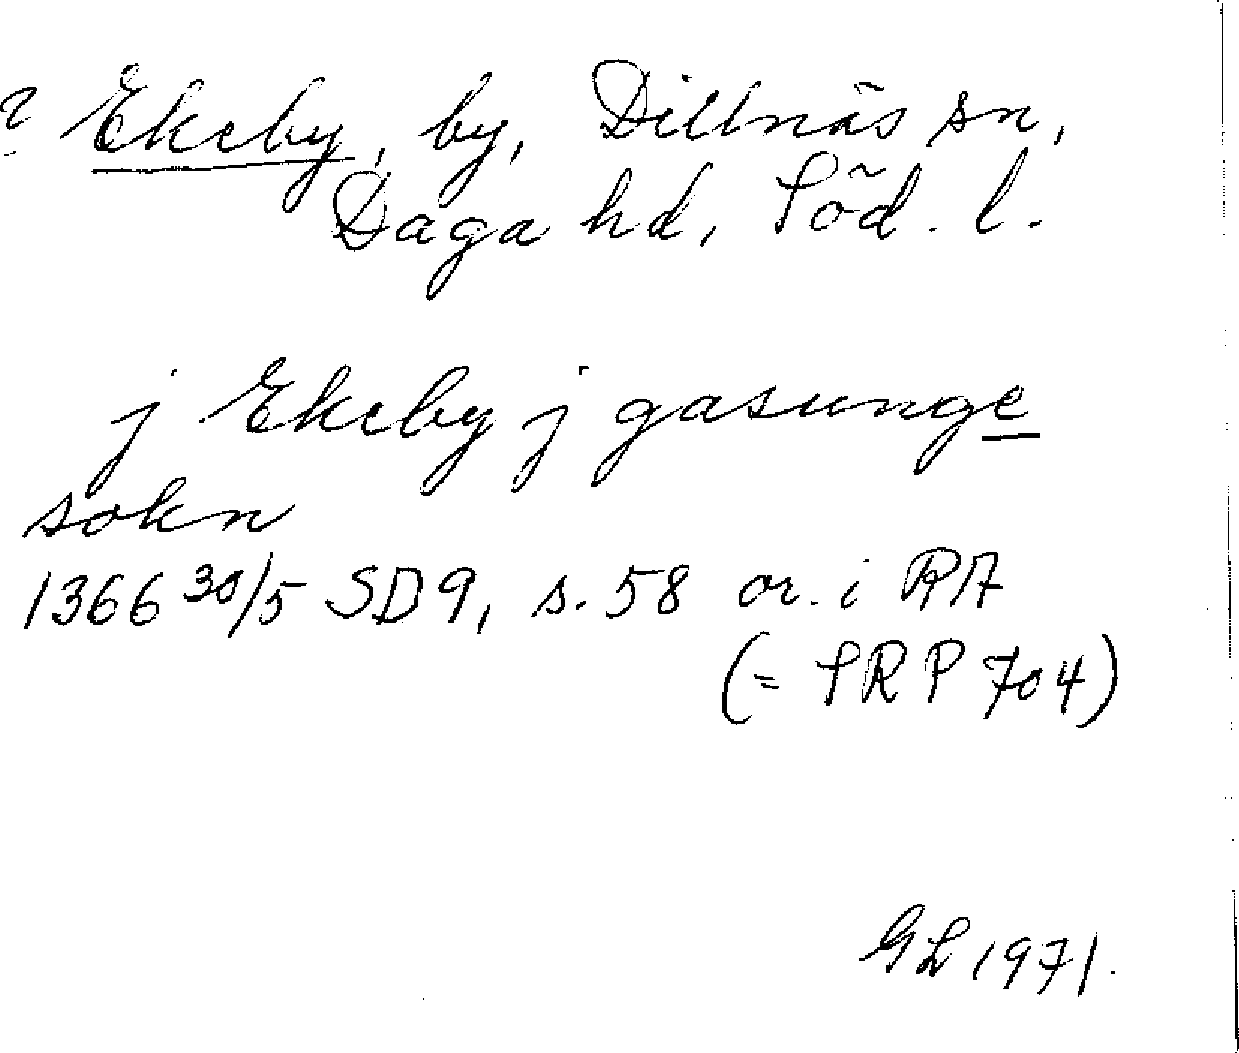 ? Ekeby, by, Dillnäs sn,
Daga hd, Söd. l.
j Ekeby j gasunge
sokn
1366 30/5 SD 9, s. 58 or. i RA
(= SRP 704)
GL 1971.